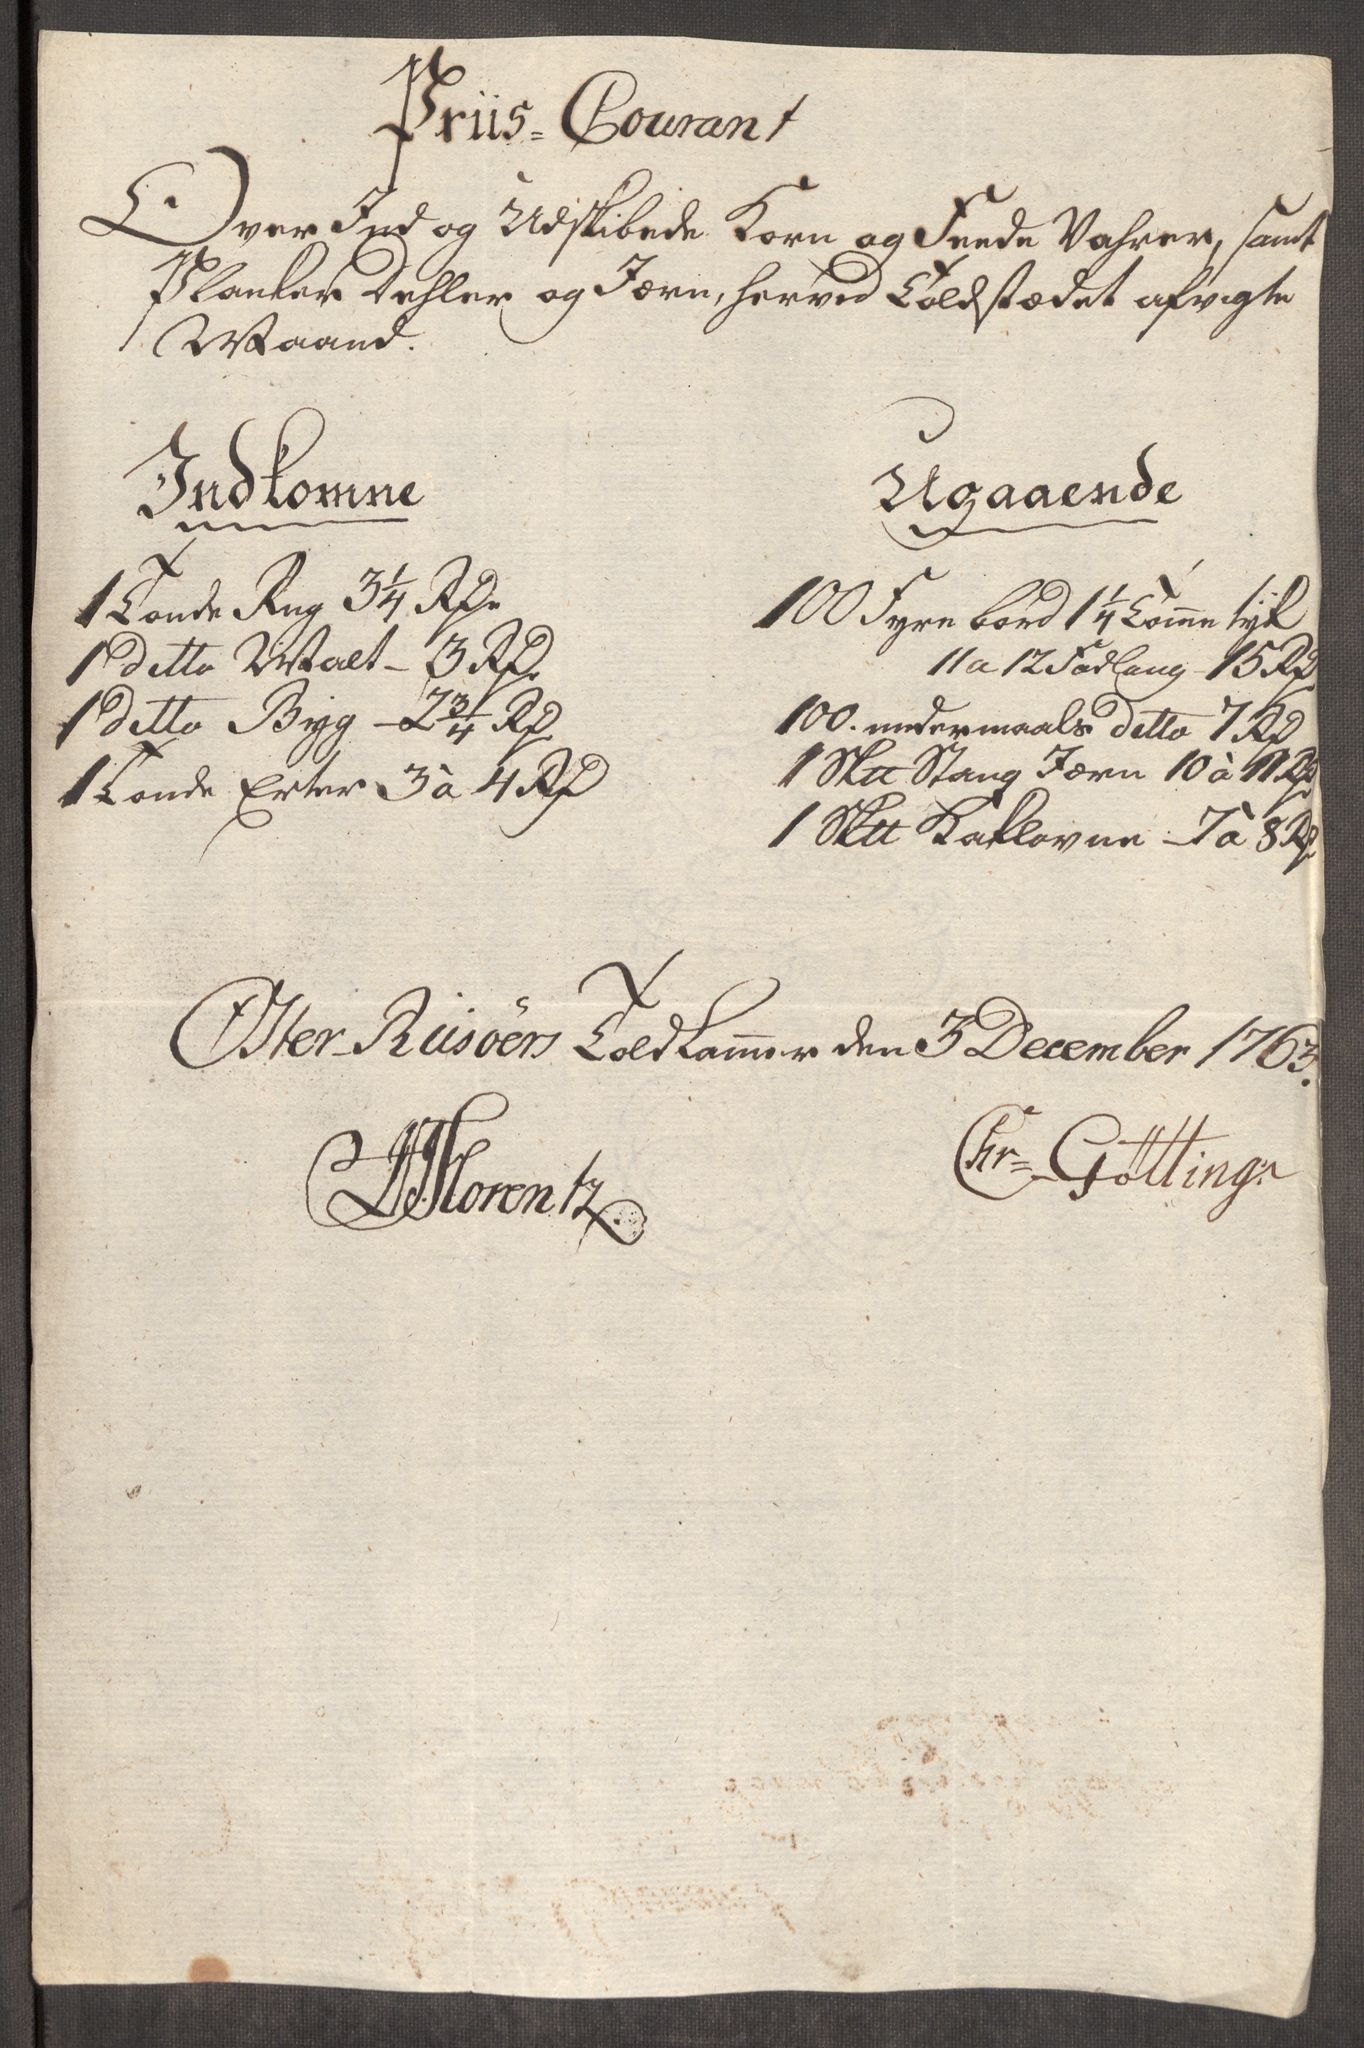 Priis-Courant
Over Ind og Udskibede Korn og Feede Vahrer, samt
Planker Dehler og Jærn, herved Toldstædet afvigte
Maaned.
Indkomne
1 Tonde Rug 3 1/4 Rd.
1 ditto Malt - 3 Rd.
1 ditto Byg - 2 3/4 Rd
1 Tonde Erter 3 à 4 Rd
Ugaaende
100 Fyrre bord 1 1/4 Tomme tyk
11 a 12 Fod lang - 15 Rd
100. undermaals ditto 7 Rd
1 Sk℔ Stang Jærn 10 à 11 Rd
1 Sk℔ Kaklovne - 7 à 8 Rd
Öster-Riisöers Toldkammer den 3 December 1763.
Lorentz
Chr= Götting